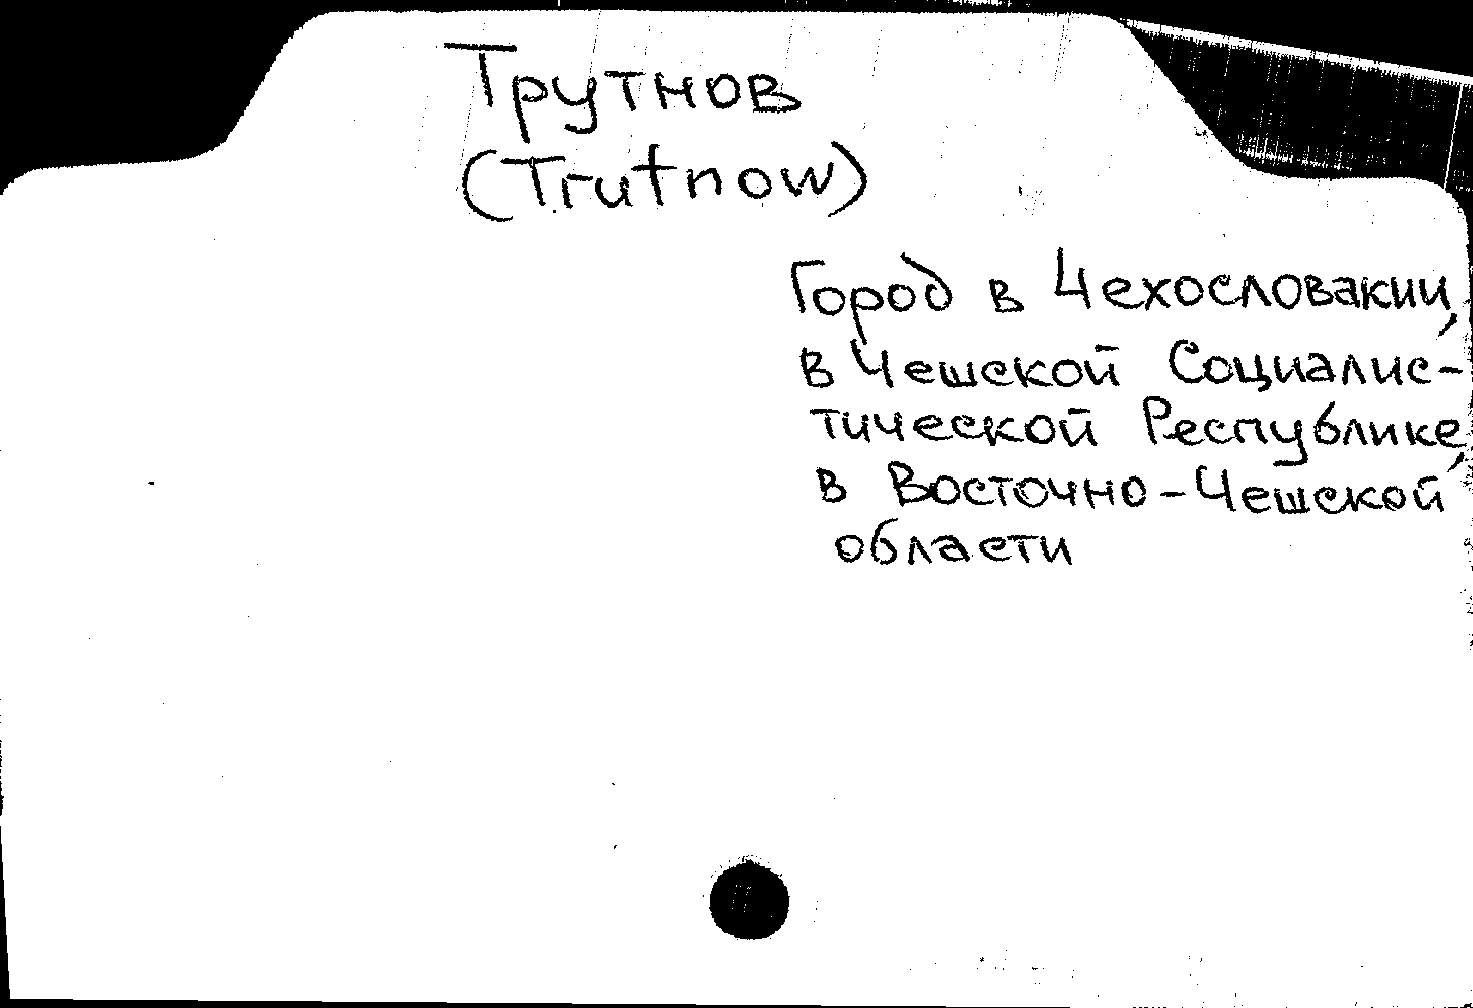 Трутнов
(Trutnow)
Город в Чехословакии,
в Чешской Социалис-
тической Республике,
в Восточно-Чешской
области